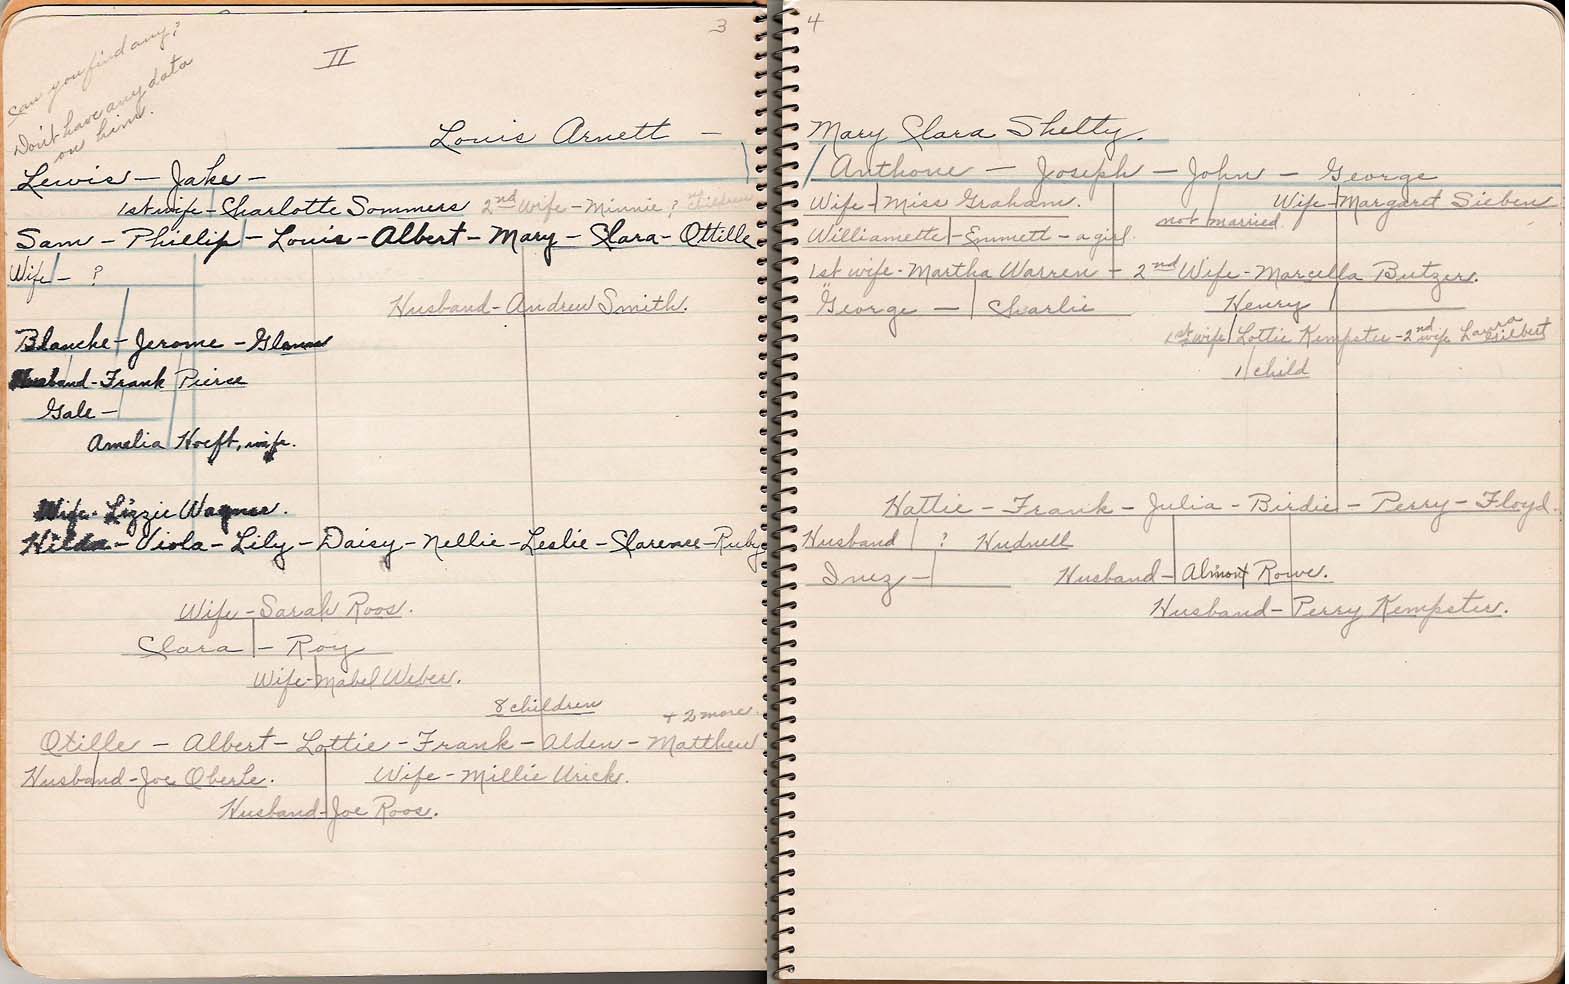 3
II
Can you find any?
Don't have any data
on him.
Louis Arnett —
Lewis — Jake —
1st wife - Charlotte Sommers 2nd Wife - Minnie ? children
Sam — Phillip — Louis — Albert — Mary — Clara — Ottille
Wife — ?
Husband - Andrew Smith.
Blanche - Jerome -
Husband - Frank Pierce
Gale —
Amelia Hoeft, wife.
Wife - Lizzie Wagner.
Hilda - Viola - Lily - Daisy - Nellie - Leslie - Clarence - Ruby
Wife - Sarah Roos.
Clara - Roy
Wife - Mabel Weber.
8 children
+ 2 more
Otille — Albert — Lottie — Frank — Alden — Matthew
Husband - Joe Oberle. Wife - Millie Urick.
Husband - Joe Roos.
4
Mary Clara Shelty.
Anthone — Joseph — John — George
Wife - Miss Graham. not married. Wife - Margaret Sieben
Williamette - Emmett - a girl.
1st wife - Martha Warren - 2nd Wife - Marcella Butzer.
George — Charlie Henry
1st wife Lottie Kempster - 2nd wife Laura Gilbert
1 child
Hattie - Frank - Julia - Birdie - Perry - Floyd.
Husband ? Hudnell
Inez — Husband - Almont Rowe.
Husband - Perry Kempster.